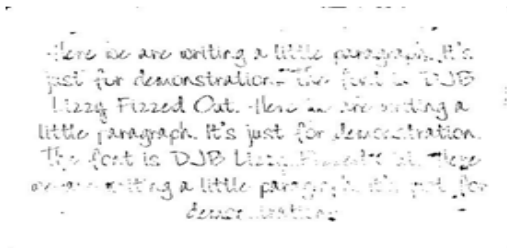 Here we are writing a little paragraph. It's
just for demonstration. The font is DJB
Lizzy Fizzed Out. Here we are writing a
little paragraph. It's just for demonstration.
The font is DJB Lizzy Fizzed Out. Here
we are writing a little paragraph. It's just for
demonstration.